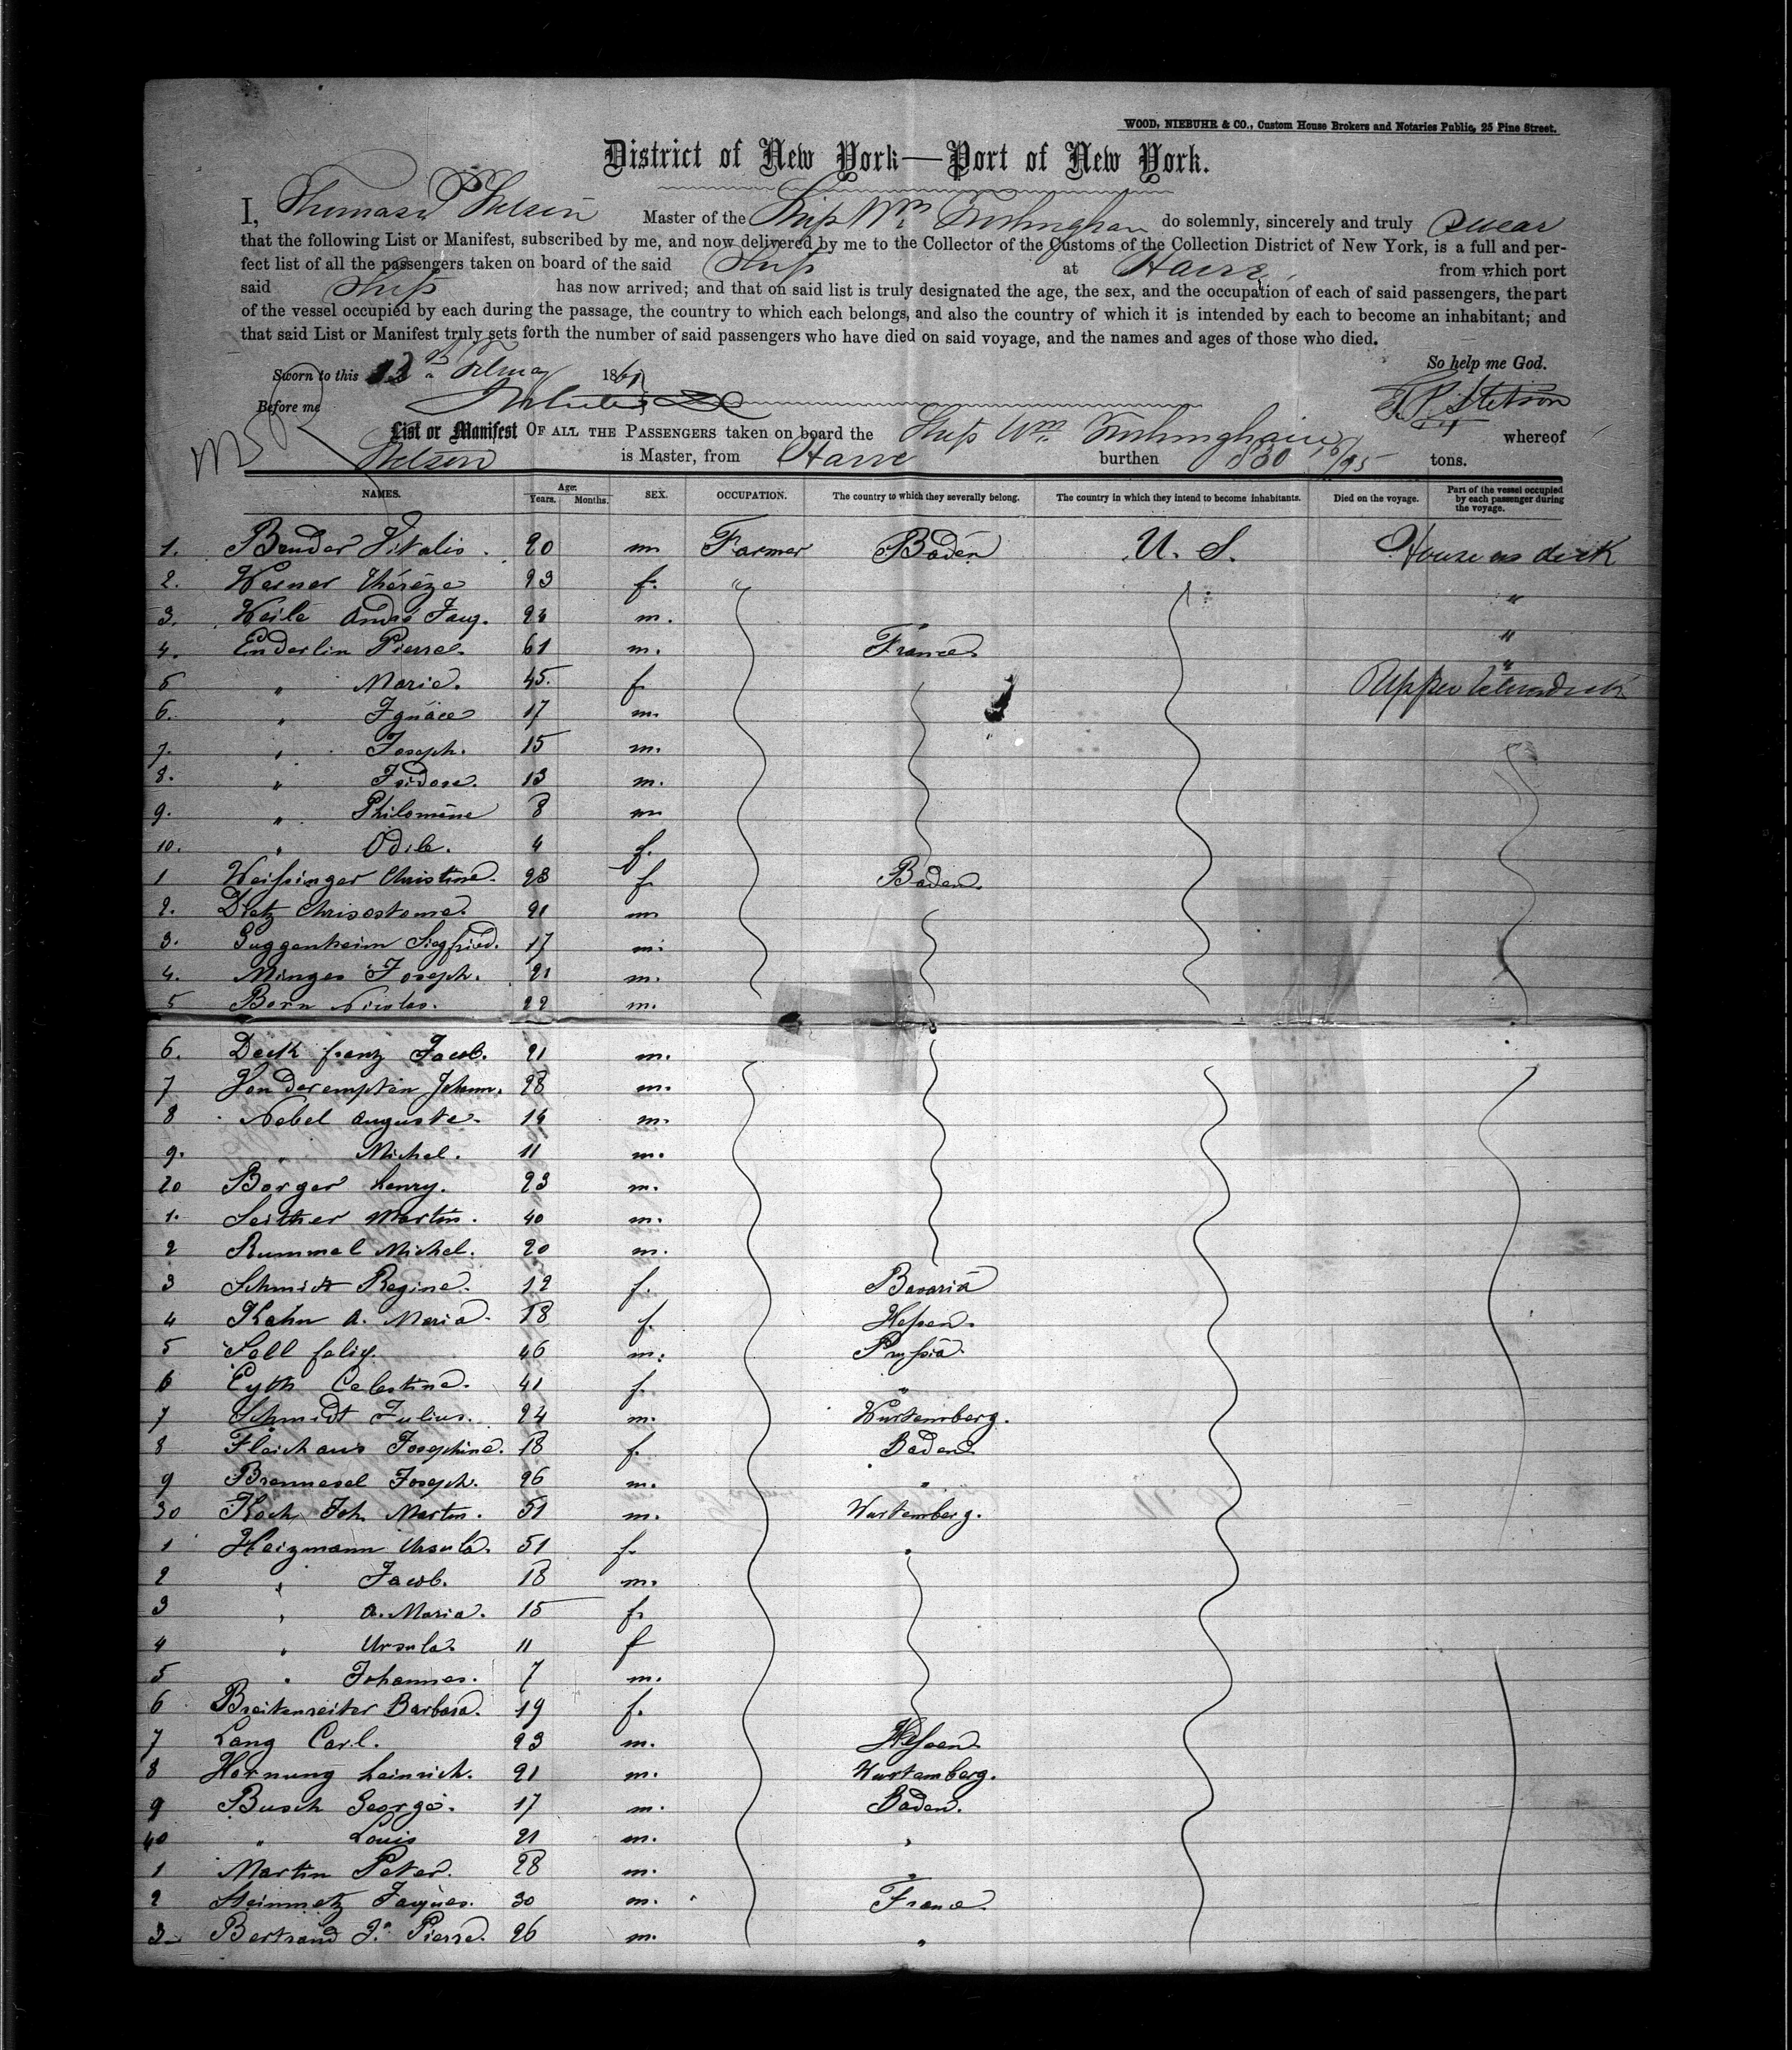 WOOD, NIEBUHR & CO., Custom House Brokers and Notaries Public, 25 Pine Street.
District of New York—Port of New York.
I, Thomas P Stetson Master of the Ship Wm Frothingham do solemnly, sincerely and truly swear
that the following List or Manifest, subscribed by me, and now delivered by me to the Collector of the Customs of the Collection District of New York, is a full and per-
fect list of all the passengers taken on board of the said Ship at Havre from which port
said Ship has now arrived; and that on said list is truly designated the age, the sex, and the occupation of each of said passengers, the part
of the vessel occupied by each during the passage, the country to which each belongs, and also the country of which it is intended by each to become an inhabitant; and
that said List or Manifest truly sets forth the number of said passengers who have died on said voyage, and the names and ages of those who died.
So help me God.
Sworn to this 1861
Before me T. P. Stetson
List or Manifest OF ALL THE PASSENGERS taken on board the Ship Wm Frothingham whereof
Stetson is Master, from Havre burthen 830 tons.
NAMES. Age: Years. Months. SEX. OCCUPATION. The country to which they severally belong. The country in which they intend to become inhabitants. Died on the voyage. Part of the vessel occupied by each passenger during the voyage.
1. Bruder Vitalis. 20 m Farmer Baden U. S. House on deck
2. Werner Thérèze 23 f. " "
3. Weile André Faug. 24 m. " "
4. Enderlin Pierre. 61 m. France "
5 " Marie. 45. f Upper
6. " Ignace 17 m.
7. " Joseph. 15 m.
8. " Isidore. 13 m.
9. " Philomène 8 m
10. " Odile. 4 f.
1 Weissinger Christine. 28 f Baden.
2. Dietz Chrisostome. 21 m
3. Guggenheim Siegfried. 17 m.
4. Minges Joseph. 21 m.
5 Born Nicolas. 22 m.
6. Deck franz Jacob. 21 m.
7 Von derempten Johann. 28 m.
8 Nebel Auguste. 14 m.
9. " Michel. 11 m.
20 Borger henry. 23 m.
1. Seither Martin. 40 m.
2 Rummel Michel. 20 m.
3 Schmidt Regine. 12 f. Bavaria
4 Kahn A. Maria. 18 f. Hessen.
5 Sell felix. 46 m. Prussia.
6 Eyth Celestine. 41 f. "
7 Schmidt Julius. 24 m. Wurtemberg.
8 Fleichaus Josephine. 18 f. Baden.
9 Brennesel Joseph. 26 m. "
30 Koch Joh. Martin. 51 m. Wurtemberg.
1 Heizmann Ursula. 51 f. "
2 " Jacob. 18 m.
3 " A. Maria. 15 f.
4 " Ursula. 11 f
5 " Johannes. 7 m.
6 Breitenreiter Barbara. 19 f.
7 Lang Carl. 23 m. Hessen.
8 Hornung heinrich. 21 m. Wurtemberg.
9 Busch George. 17 m. Baden.
40 " Louis 21 m. "
1 Martin Peter. 28 m. "
2 Steinmetz Jaques. 30 m. France.
3 Bertrand Jn Pierre. 26 m. "